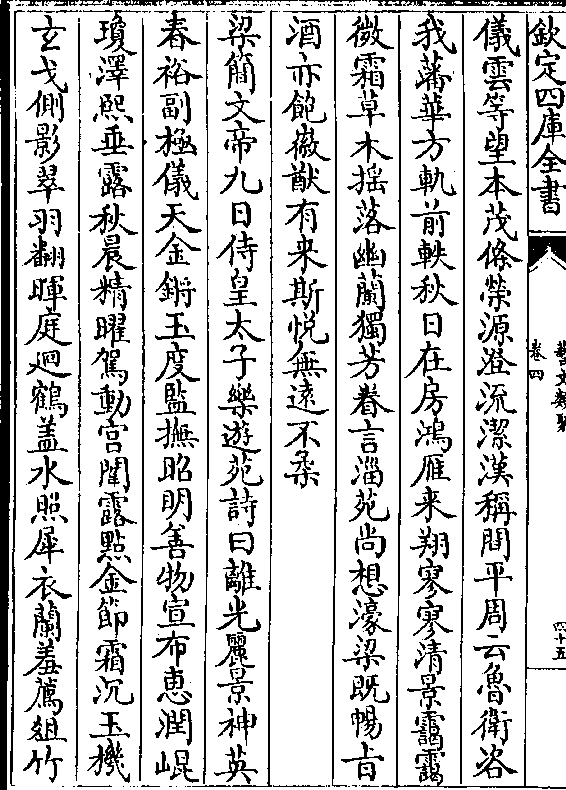 欽定四庫全書
藝文類聚
卷四
四十五
儀雲等望本茂條榮源澄流潔漢稱間平周云魯衛咨
我藩華方軌前軼秋日在房鴻雁来翔寥寥清景靄靄
微霜草木揺落幽蘭獨芳眷言淄苑尚想濠梁既暢㫖
酒亦飽徽猷有来斯悦無逺不柔
梁簡文帝九日侍皇太子樂遊苑詩曰離光麗景神英
春裕副極儀天金鏘玉度監撫昭明善物宣布惠潤崐
瓊澤熙垂露秋晨精曜駕動宫闈露㸃金節霜沉玉機
玄戈側影翠羽翻暉庭迴鶴盖水照犀衣蘭羞薦俎竹